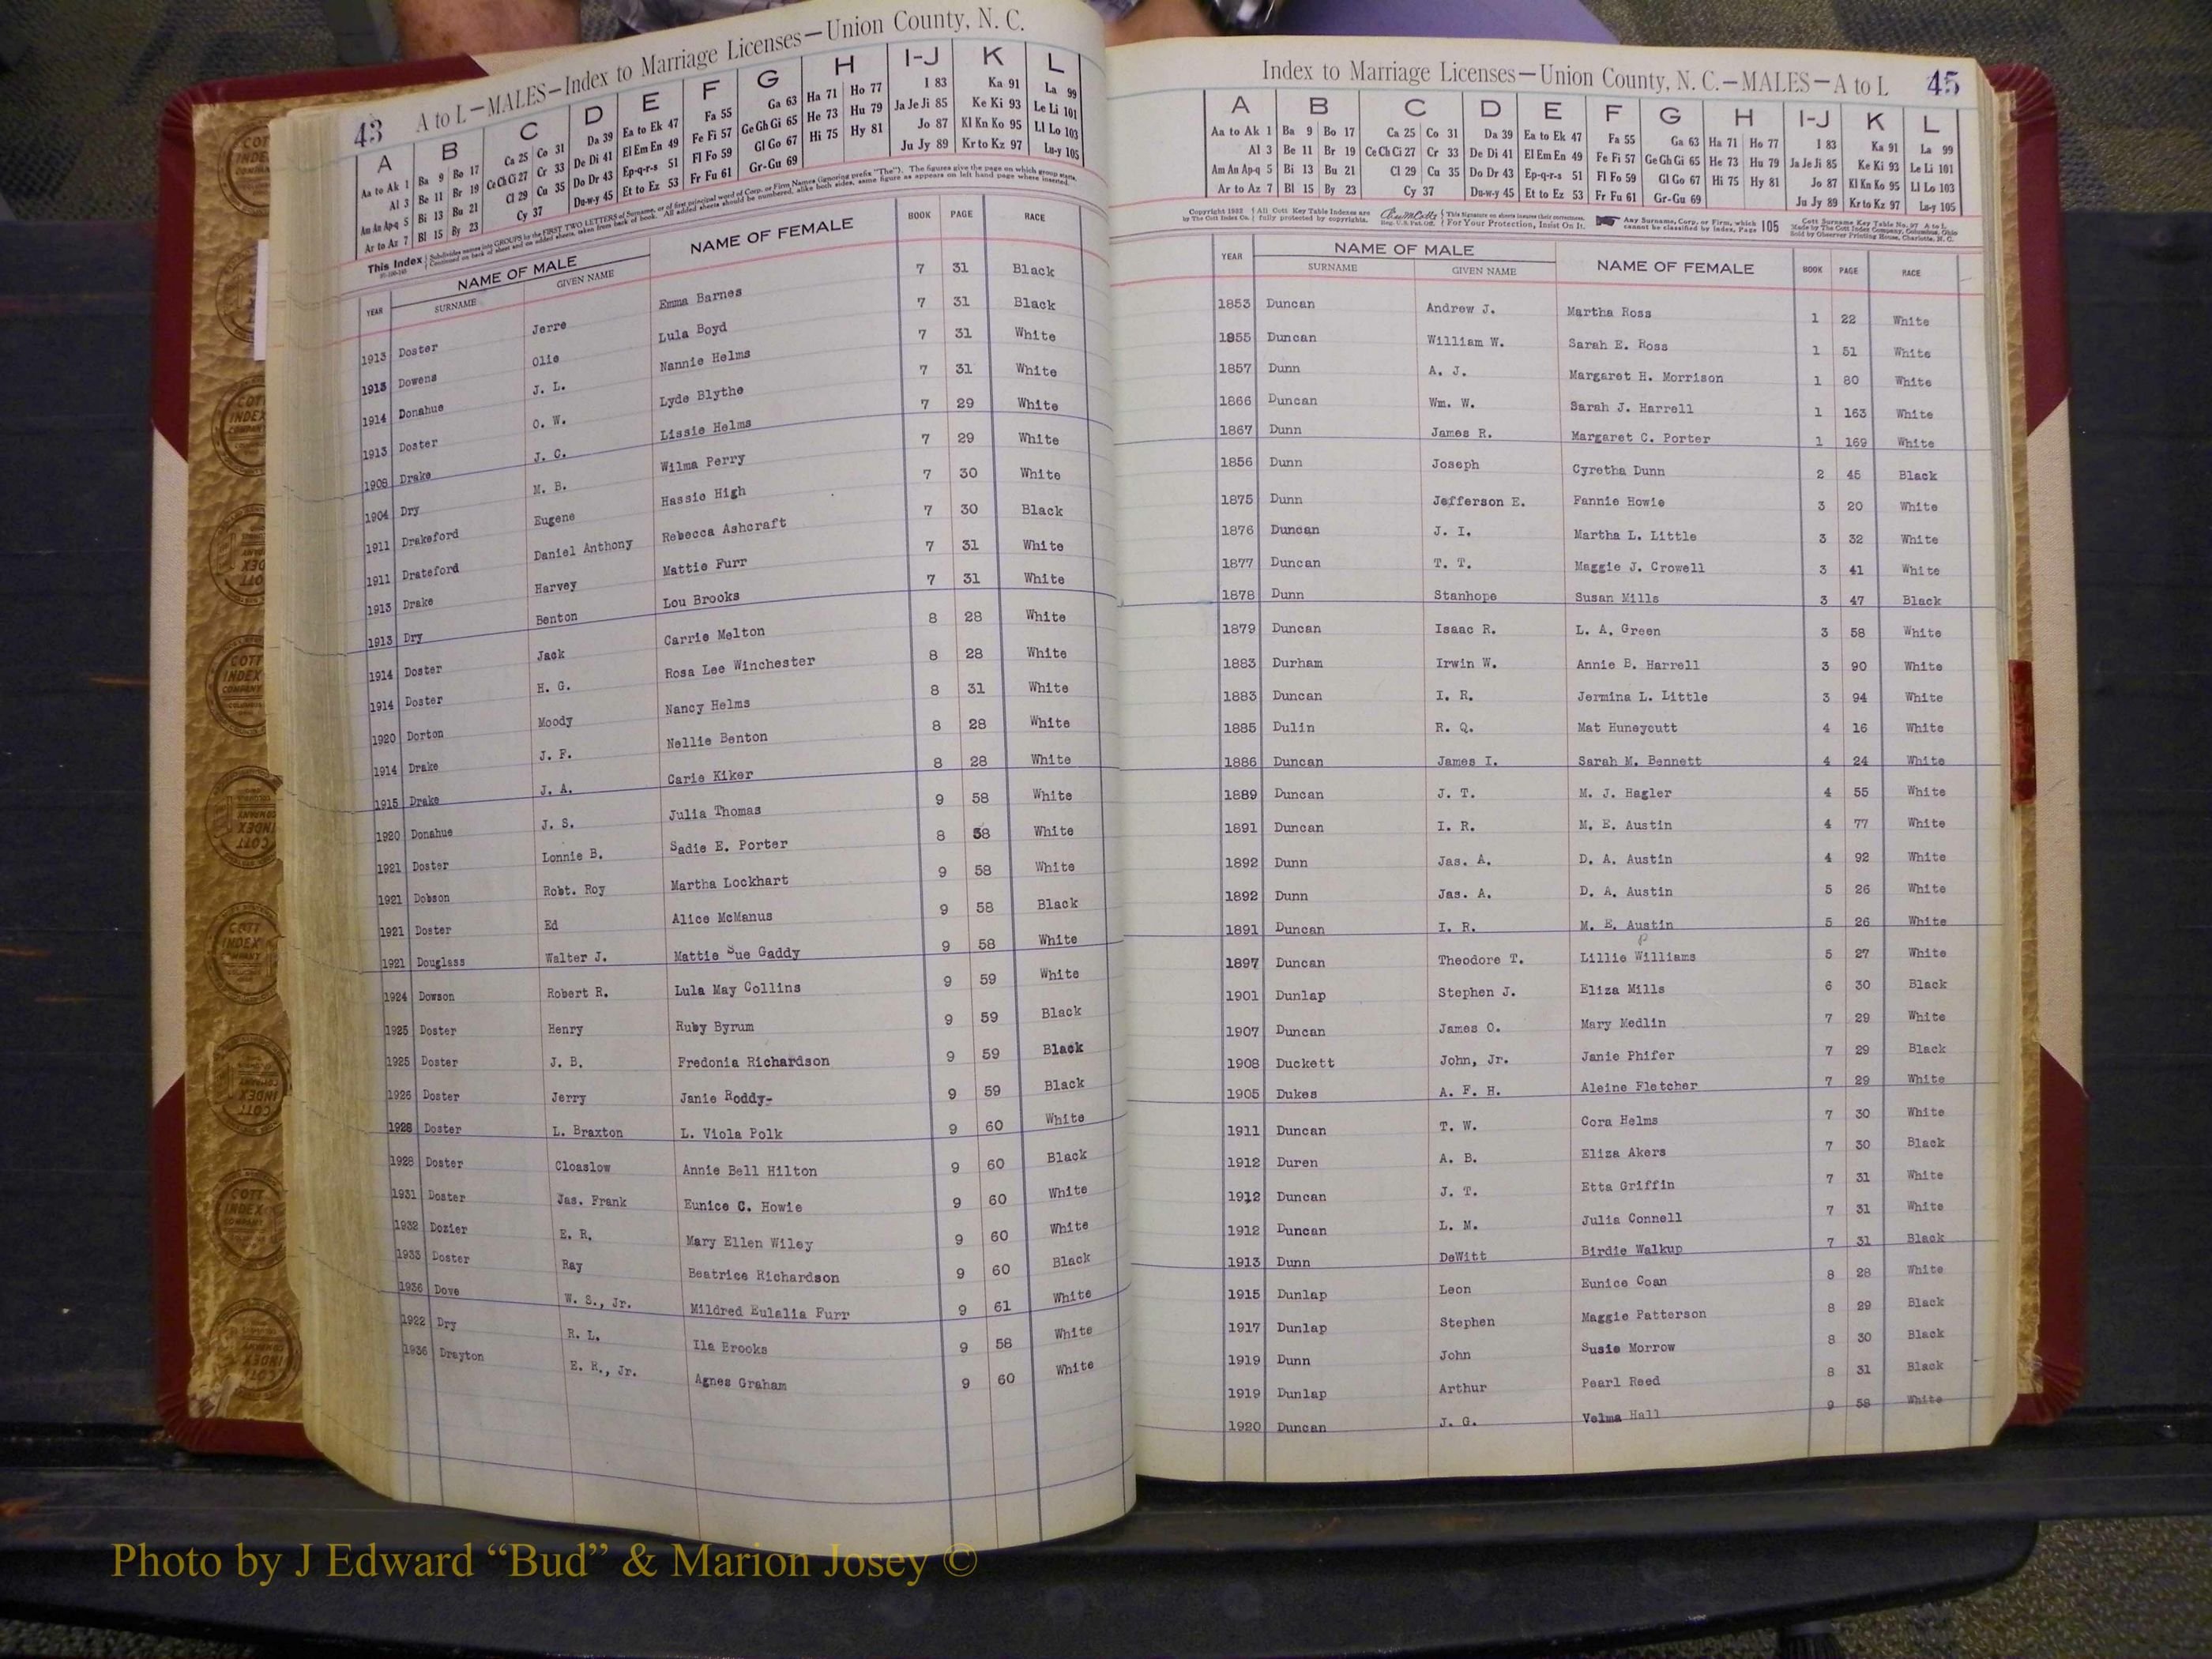 43 A to L—MALES—Index to Marriage Licenses—Union County, N. C.
A B C D E F G H I-J K L
Aa to Ak 1 Ba 9 Bo 17 Ca 25 Co 31 Da 39 Ea to Ek 47 Fa 55 Ga 63 Ha 71 Ho 77 I 83 Ka 91 La 99
Al 3 Be 11 Br 19 Ce Ch Ci 27 Cr 33 De Di 41 El Em En 49 Fe Fi 57 Ge Gh Gi 65 He 73 Hu 79 Ja Je Ji 85 Ke Ki 93 Le Li 101
Am An Ap-q 5 Bi 13 Bu 21 Cl 29 Cu 35 Do Dr 43 Ep-q-r-s 51 Fl Fo 59 Gl Go 67 Hi 75 Hy 81 Jo 87 Kl Kn Ko 95 Ll Lo 103
Ar to Az 7 Bl 15 By 23 Cy 37 Du-w-y 45 Et to Ez 53 Fr Fu 61 Gr-Gu 69 Ju Jy 89 Kr to Kz 97 Lu-y 105
This Index Subdivides names into GROUPS by the FIRST TWO LETTERS of Surname, or of first principal word of Corp. or Firm Names (ignoring prefix "The"). The figures give the page on which group starts.
Continued on back of sheet and on added sheets, taken from back of book. All added sheets should be numbered, alike both sides, same figure as appears on left hand page where inserted.
YEAR NAME OF MALE NAME OF FEMALE BOOK PAGE RACE
SURNAME GIVEN NAME
1913 Doster Jerre Emma Barnes 7 31 Black
1913 Dowens Olie Lula Boyd 7 31 Black
1914 Donahue J. L. Nannie Helms 7 31 White
1913 Doster O. W. Lyde Blythe 7 31 White
1908 Drake J. C. Lissie Helms 7 29 White
1904 Dry M. B. Wilma Perry 7 29 White
1911 Drakeford Eugene Hassie High 7 30 White
1911 Drateford Daniel Anthony Rebecca Ashcraft 7 30 Black
1913 Drake Harvey Mattie Furr 7 31 White
1913 Dry Benton Lou Brooks 7 31 White
1914 Doster Jack Carrie Melton 8 28 White
1914 Doster H. G. Rosa Lee Winchester 8 28 White
1920 Dorton Moody Nancy Helms 8 31 White
1914 Drake J. F. Nellie Benton 8 28 White
1915 Drake J. A. Carie Kiker 8 28 White
1920 Donahue J. S. Julia Thomas 9 58 White
1921 Doster Lonnie B. Sadie E. Porter 8 58 White
1921 Dobson Robt. Roy Martha Lockhart 9 58 White
1921 Doster Ed Alice McManus 9 58 Black
1921 Douglass Walter J. Mattie Sue Gaddy 9 58 White
1924 Dowson Robert R. Lula May Collins 9 59 White
1925 Doster Henry Ruby Byrum 9 59 Black
1925 Doster J. B. Fredonia Richardson 9 59 Black
1926 Doster Jerry Janie Roddy- 9 59 Black
1928 Doster L. Braxton L. Viola Polk 9 60 White
1928 Doster Cloaslow Annie Bell Hilton 9 60 Black
1931 Doster Jas. Frank Eunice C. Howie 9 60 White
1932 Dozier E. R. Mary Ellen Wiley 9 60 White
1933 Doster Ray Beatrice Richardson 9 60 Black
1936 Dove W. S., Jr. Mildred Eulalia Furr 9 61 White
1922 Dry R. L. Ila Brooks 9 58 White
1936 Drayton E. R., Jr. Agnes Graham 9 60 White
Index to Marriage Licenses—Union County, N. C.—MALES—A to L 45
A B C D E F G H I-J K L
Aa to Ak 1 Ba 9 Bo 17 Ca 25 Co 31 Da 39 Ea to Ek 47 Fa 55 Ga 63 Ha 71 Ho 77 I 83 Ka 91 La 99
Al 3 Be 11 Br 19 Ce Ch Ci 27 Cr 33 De Di 41 El Em En 49 Fe Fi 57 Ge Gh Gi 65 He 73 Hu 79 Ja Je Ji 85 Ke Ki 93 Le Li 101
Am An Ap-q 5 Bi 13 Bu 21 Cl 29 Cu 35 Do Dr 43 Ep-q-r-s 51 Fl Fo 59 Gl Go 67 Hi 75 Hy 81 Jo 87 Kl Kn Ko 95 Ll Lo 103
Ar to Az 7 Bl 15 By 23 Cy 37 Du-w-y 45 Et to Ez 53 Fr Fu 61 Gr-Gu 69 Ju Jy 89 Kr to Kz 97 Lu-y 105
Copyright 1932 All Cott Key Table Indexes are This Signature on sheets insures their correctness. Any Surname, Corp. or Firm, which Cott Surname Key Table No. 97 A to L
by The Cott Index Co. fully protected by copyrights. Reg. U.S. Pat. Off. For Your Protection, Insist On It. cannot be classified by Index, Page 105 Made by The Cott Index Company, Columbus, Ohio
Sold by Observer Printing House, Charlotte, N. C.
YEAR NAME OF MALE NAME OF FEMALE BOOK PAGE RACE
SURNAME GIVEN NAME
1853 Duncan Andrew J. Martha Ross 1 22 White
1955 Duncan William W. Sarah E. Ross 1 51 White
1857 Dunn A. J. Margaret H. Morrison 1 80 White
1866 Duncan Wm. W. Sarah J. Harrell 1 163 White
1867 Dunn James R. Margaret C. Porter 1 169 White
1856 Dunn Joseph Cyretha Dunn 2 45 Black
1875 Dunn Jefferson E. Fannie Howie 3 20 White
1876 Duncan J. I. Martha L. Little 3 32 White
1877 Duncan T. T. Maggie J. Crowell 3 41 White
1878 Dunn Stanhope Susan Mills 3 47 Black
1879 Duncan Isaac R. L. A. Green 3 58 White
1883 Durham Irwin W. Annie B. Harrell 3 90 White
1883 Duncan I. R. Jermina L. Little 3 94 White
1885 Dulin R. Q. Mat Huneycutt 4 16 White
1886 Duncan James I. Sarah M. Bennett 4 24 White
1889 Duncan J. T. M. J. Hagler 4 55 White
1891 Duncan I. R. M. E. Austin 4 77 White
1892 Dunn Jas. A. D. A. Austin 4 92 White
1892 Dunn Jas. A. D. A. Austin 5 26 White
1891 Duncan I. R. M. E. Austin 5 26 White
1897 Duncan Theodore T. Lillie Williams 5 27 White
1901 Dunlap Stephen J. Eliza Mills 6 30 Black
1907 Duncan James O. Mary Medlin 7 29 White
1908 Duckett John, Jr. Janie Phifer 7 29 Black
1905 Dukes A. F. H. Aleine Fletcher 7 29 White
1911 Duncan T. W. Cora Helms 7 30 White
1912 Duren A. B. Eliza Akers 7 30 Black
1912 Duncan J. T. Etta Griffin 7 31 White
1912 Duncan L. M. Julia Connell 7 31 White
1913 Dunn DeWitt Birdie Walkup 7 31 Black
1915 Dunlap Leon Eunice Coan 8 28 White
1917 Dunlap Stephen Maggie Patterson 8 29 Black
1919 Dunn John Susie Morrow 8 30 Black
1919 Dunlap Arthur Pearl Reed 8 31 Black
1920 Duncan J. G. Velma Hall 9 58 White
Photo by J Edward “Bud” & Marion Josey ©